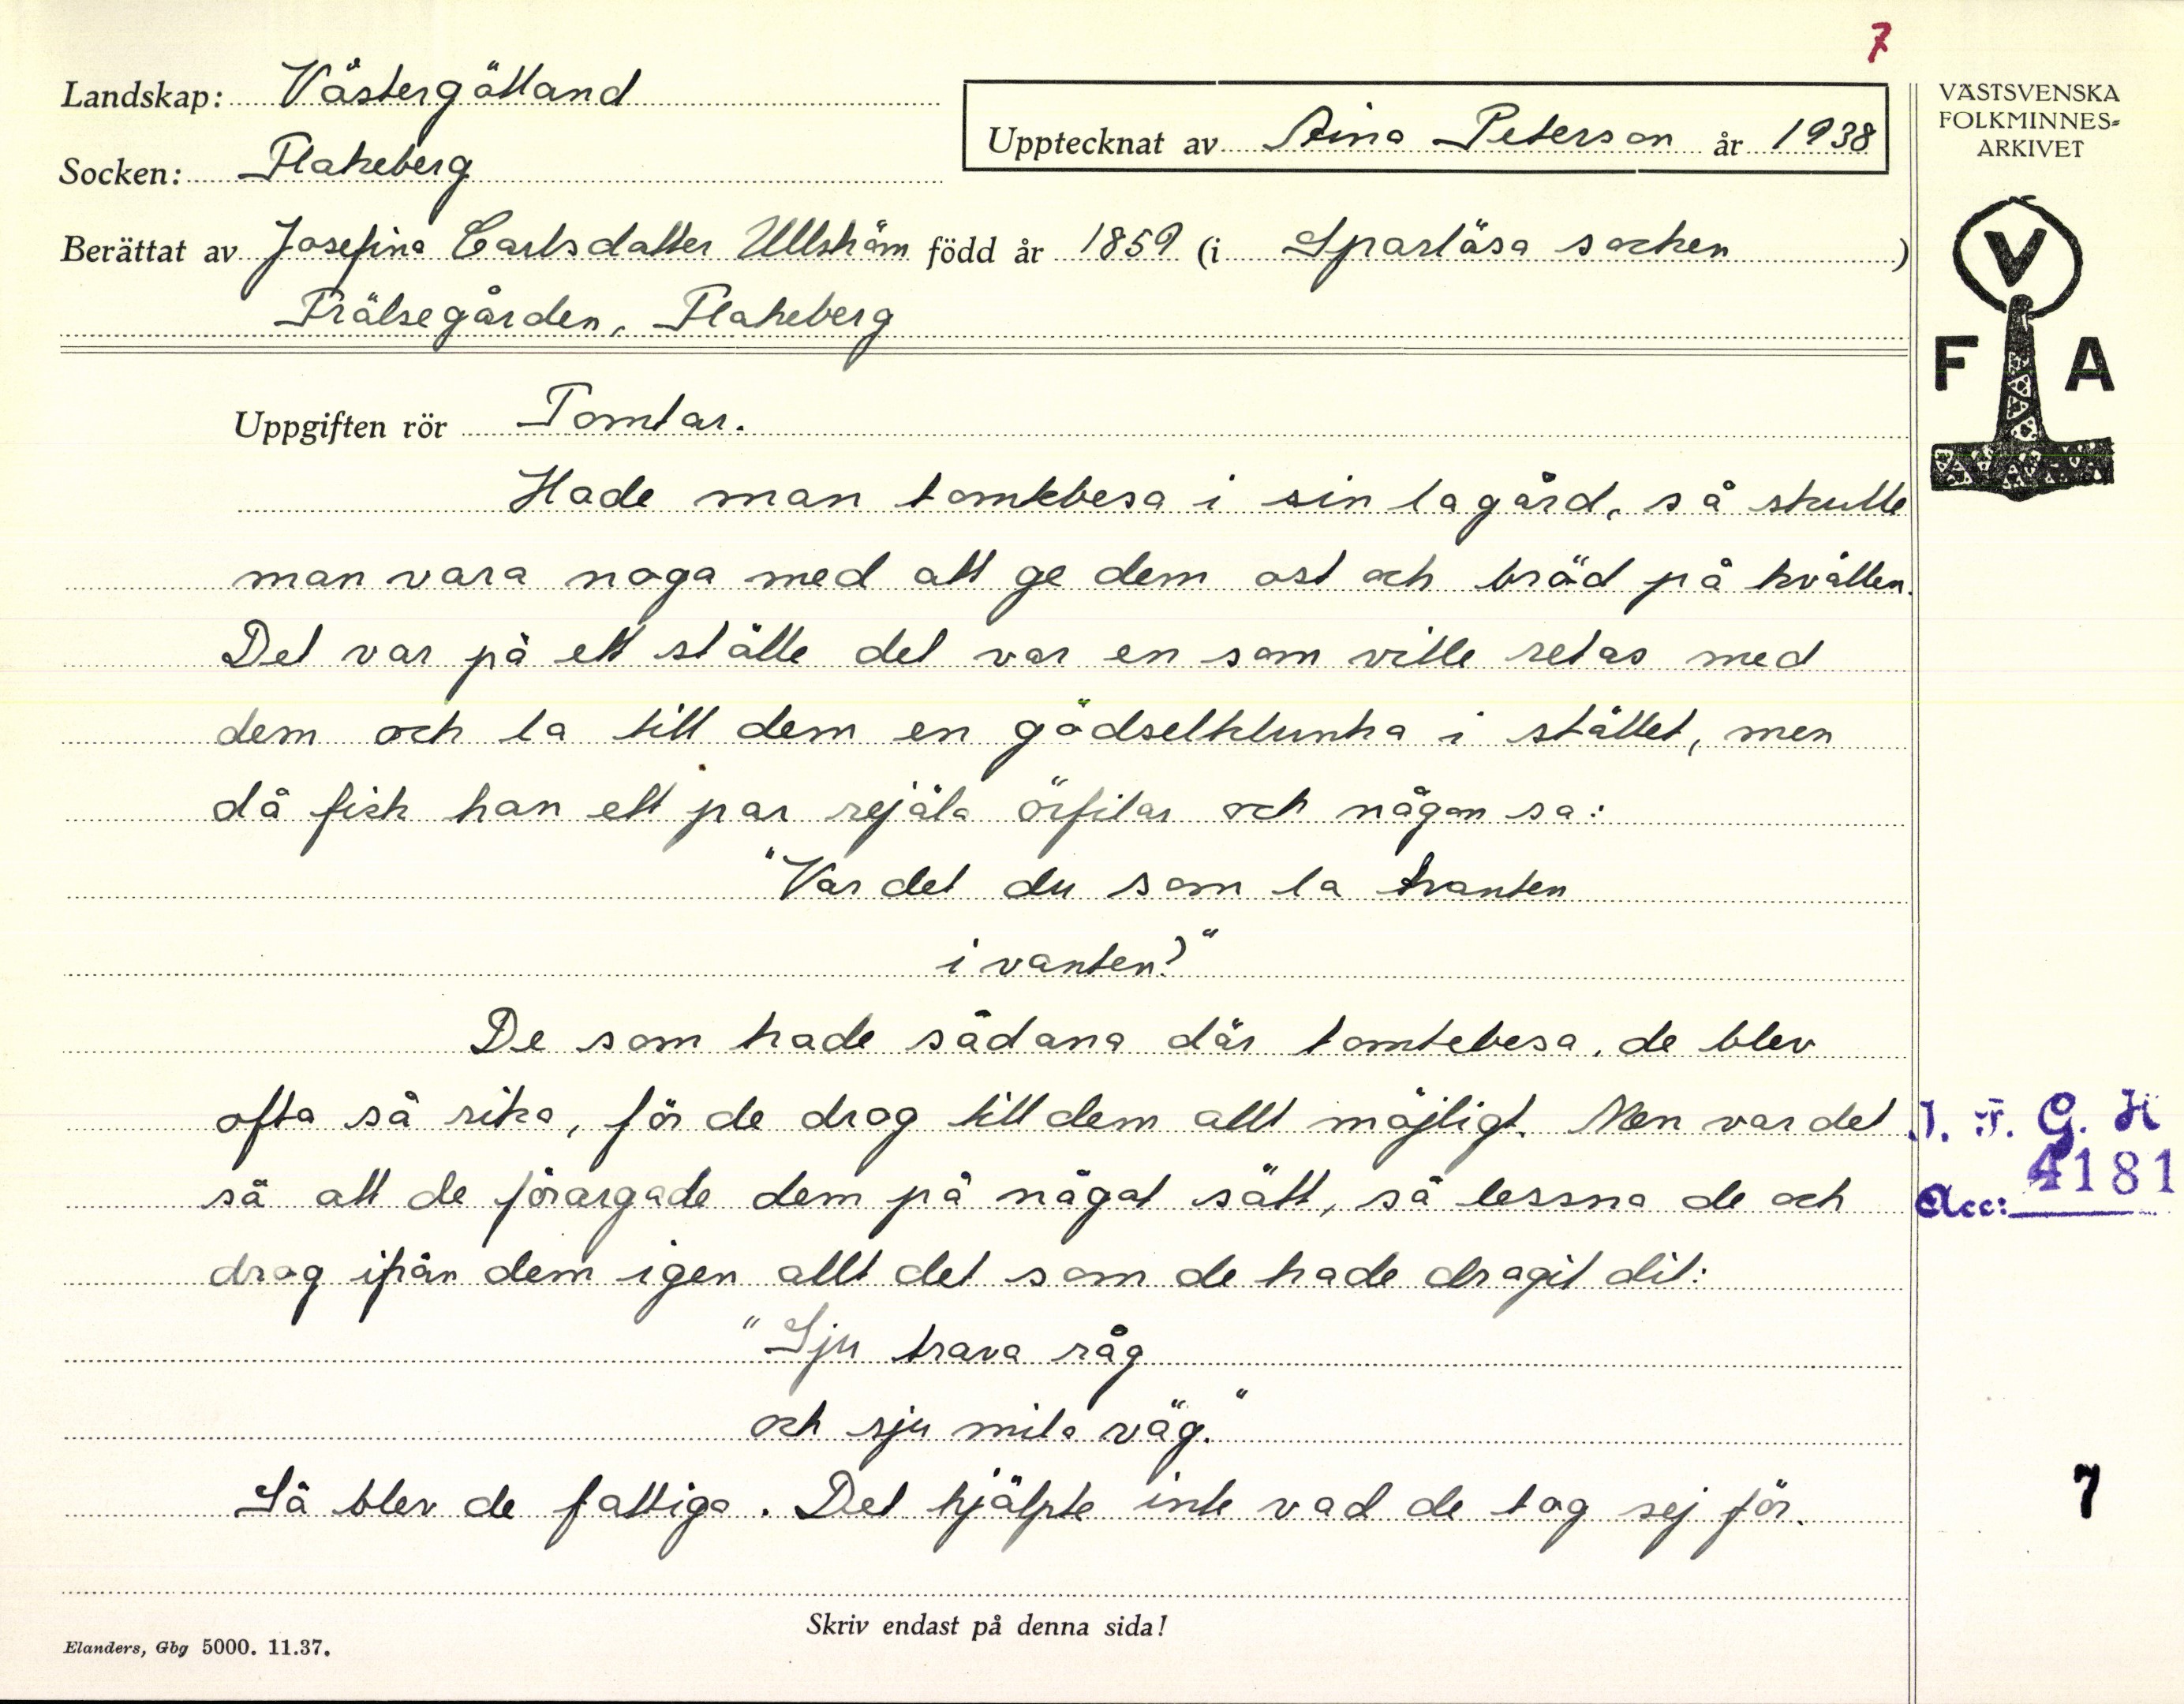 7
Landskap: Västergötland
Socken: Flakeberg
Upptecknat av Aina Peterson år 1938
Berättat av Josefina Carlsdotter Ullström född år 1859 (i Sparlösa socken)
Frälsegården, Flakeberg
VÄSTSVENSKA
FOLKMINNES=
ARKIVET
V
F A
Uppgiften rör Tomtar.
Hade man tomtebesa i sin lagård, så skulle
man vara noga med att ge dem ost och bröd på kvällen.
Det var på ett ställe det var en som ville retas med
dem och la till dem en gödselklunka i stället, men
då fick han ett par rejäla örfilar och någon sa:
"Var det du som la tranten
i vanten?"
De som hade sådana där tomtebesa, de blev
ofta så rika, för de drog till dem allt möjligt. Men var det
så att de förargade dem på något sätt, så lessna de och
drog ifrån dem igen allt det som de hade dragit dit:
"Sju trava råg
och sju mila väg."
Så blev de fattiga. Det hjälpte inte vad de tog sej för.
I. F. G. H
Acc: 4181
7
Skriv endast på denna sida!
Elanders, Gbg 5000. 11.37.